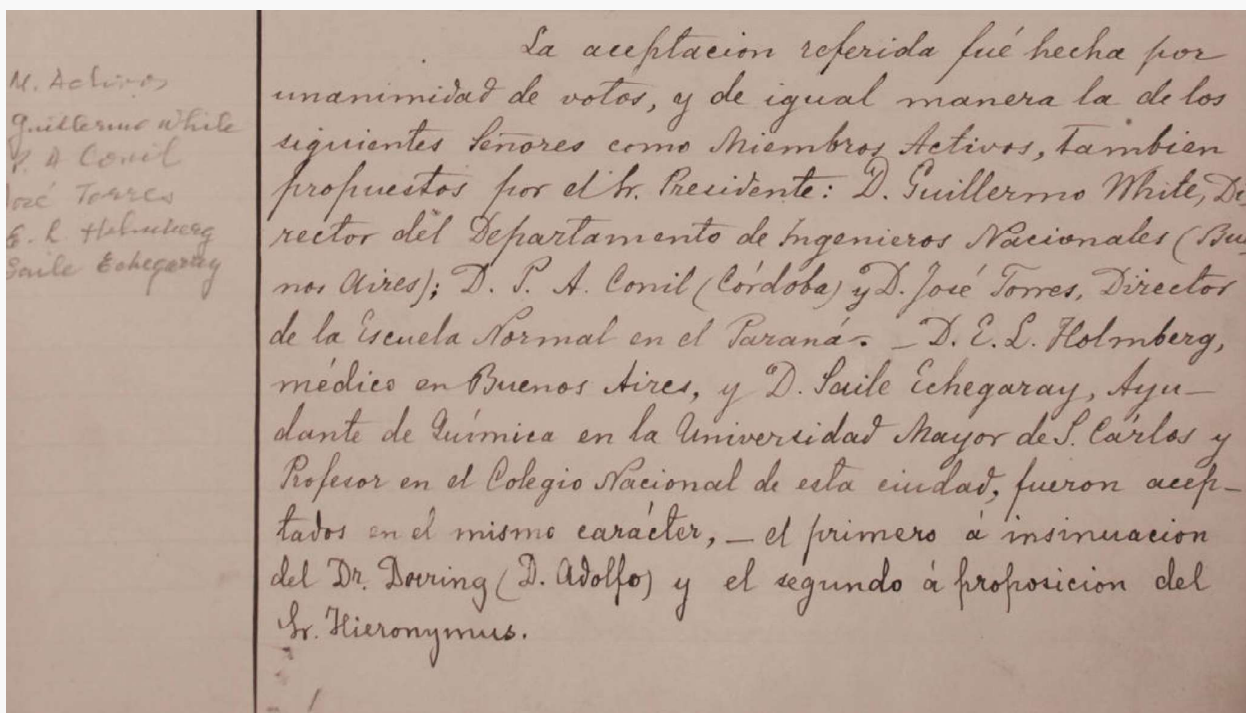 M. Activos
Guillermo White
P. A Conil
José Torres
E. L Holmberg
Saile Echegaray
La aceptacion referida fué hecha por
unanimidad de votos, y de igual manera la de los
siguientes Señores como Miembros Activos, tambien
propuestos por el Sr. Presidente: D. Guillermo White, Di-
rector del Departamento de Ingenieros Nacionales (Bue-
nos Aires); D. P. A. Conil (Córdoba) y D. José Torres, Director
de la Escuela Normal en el Paraná. — D. E. L. Holmberg,
médico en Buenos Aires, y D. Saile Echegaray, Ayu-
dante de Química en la Universidad Mayor de S. Cárlos y
Profesor en el Colegio Nacional de esta ciudad, fueron acep-
tados en el mismo carácter, — el primero á insinuacion
del Dr. Doering (D. Adolfo) y el segundo á proposicion del
Sr. Hieronymus.